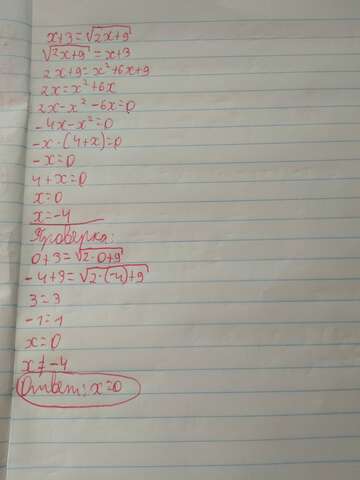 x+3=√2x+9
√2x+9=x+3
2x+9=x²+6x+9
2x=x²+6x
2x-x²-6x=0
-4x-x²=0
-x·(4+x)=0
-x=0
4+x=0
x=0
x=-4
Проверка:
0+3=√2·0+9
-4+3=√2·(-4)+9
3=3
-1=1
x=0
x≠-4
Ответ: x=0